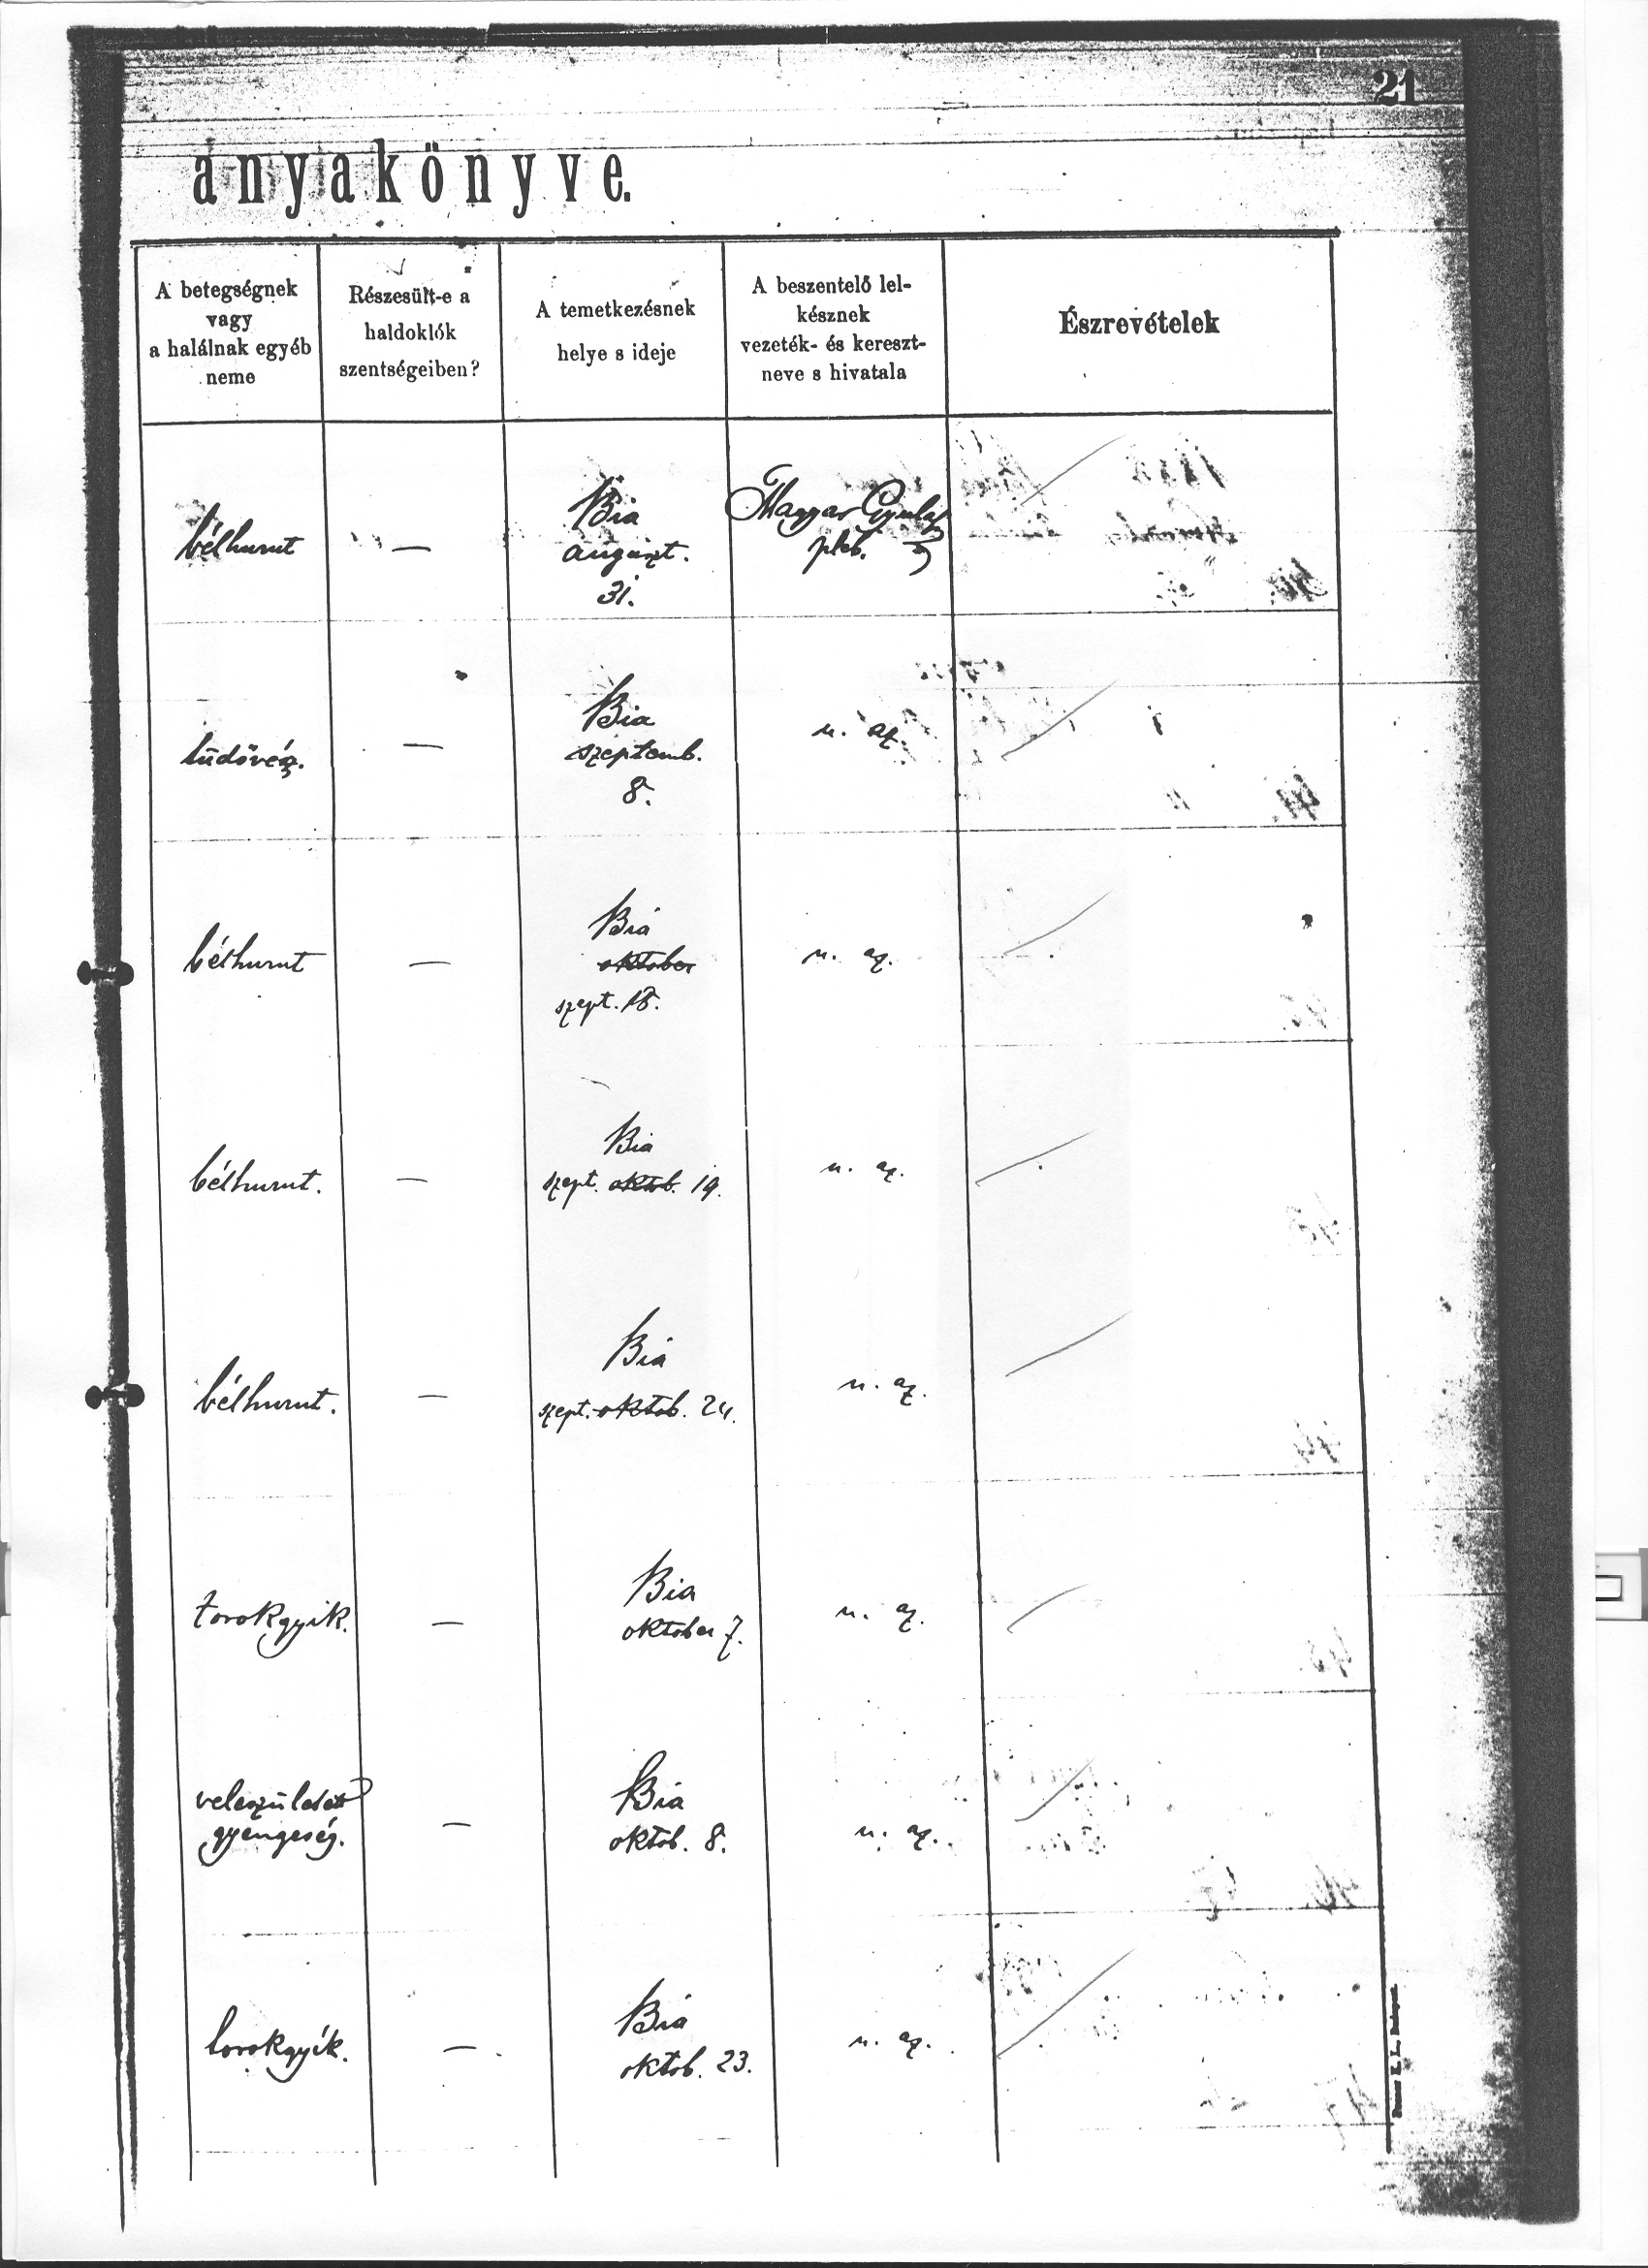 21
anyakönyve.
A betegségnek
vagy
a halálnak egyéb
neme
Részesült-e a
haldoklók
szentségeiben?
A temetkezésnek
helye s ideje
A beszentelő lel-
késznek
vezeték- és kereszt-
neve s hivatala
Észrevételek
bélhurut
—
Bia
auguszt.
31.
Magyar Gyula
pléb.
tüdővész.
—
Bia
szeptemb.
8.
u. az.
bélhurut
—
Bia
oktober
szept. 18.
u. az.
bélhurut.
—
Bia
szept. oktob. 19.
u. az.
bélhurut.
—
Bia
szept. oktob. 24.
u. az.
torokgyik.
—
Bia
oktober 7.
u. az.
veleszületett
gyengeség.
—
Bia
oktob. 8.
u. az.
torokgyík.
—
Bia
oktob. 23.
u. az.